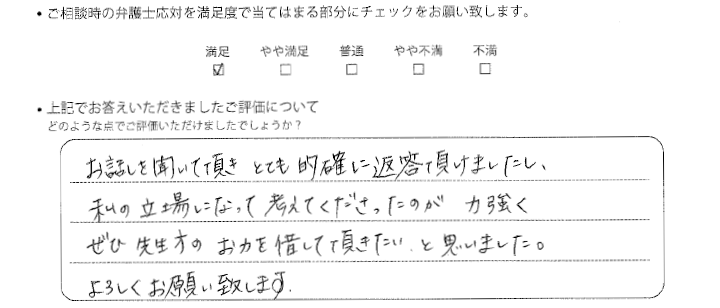 ・ご相談時の弁護士応対を満足度で当てはまる部分にチェックをお願い致します。
満足 やや満足 普通 やや不満 不満
☑ □ □ □ □
・上記でお答えいただきましたご評価について
どのような点でご評価いただけましたでしょうか？
お話しを聞いて頂き とても的確に返答頂けましたし、
私の立場になって考えてくださったのが 力強く
ぜひ先生方のお力を借して頂きたい、と思いました。
よろしくお願い致します。